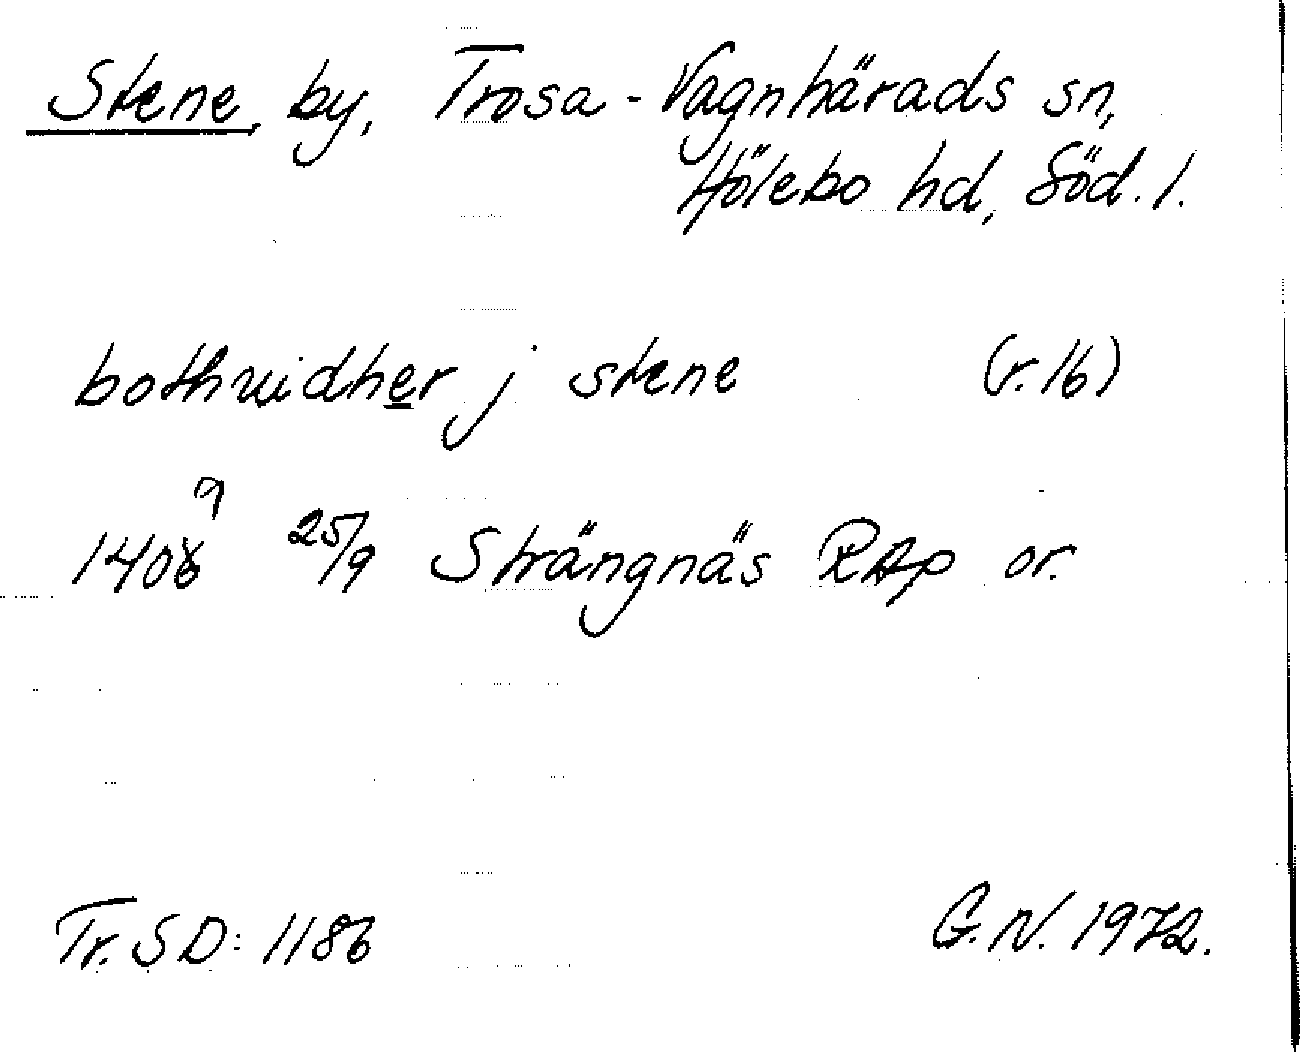 Stene, by, Trosa-Vagnhärads sn,
Hölebo hd, Söd. l.
bothuidher j stene (r. 16)
1408 25/9 Strängnäs RAp or.
Tr. SD: 1186 G.N. 1972.